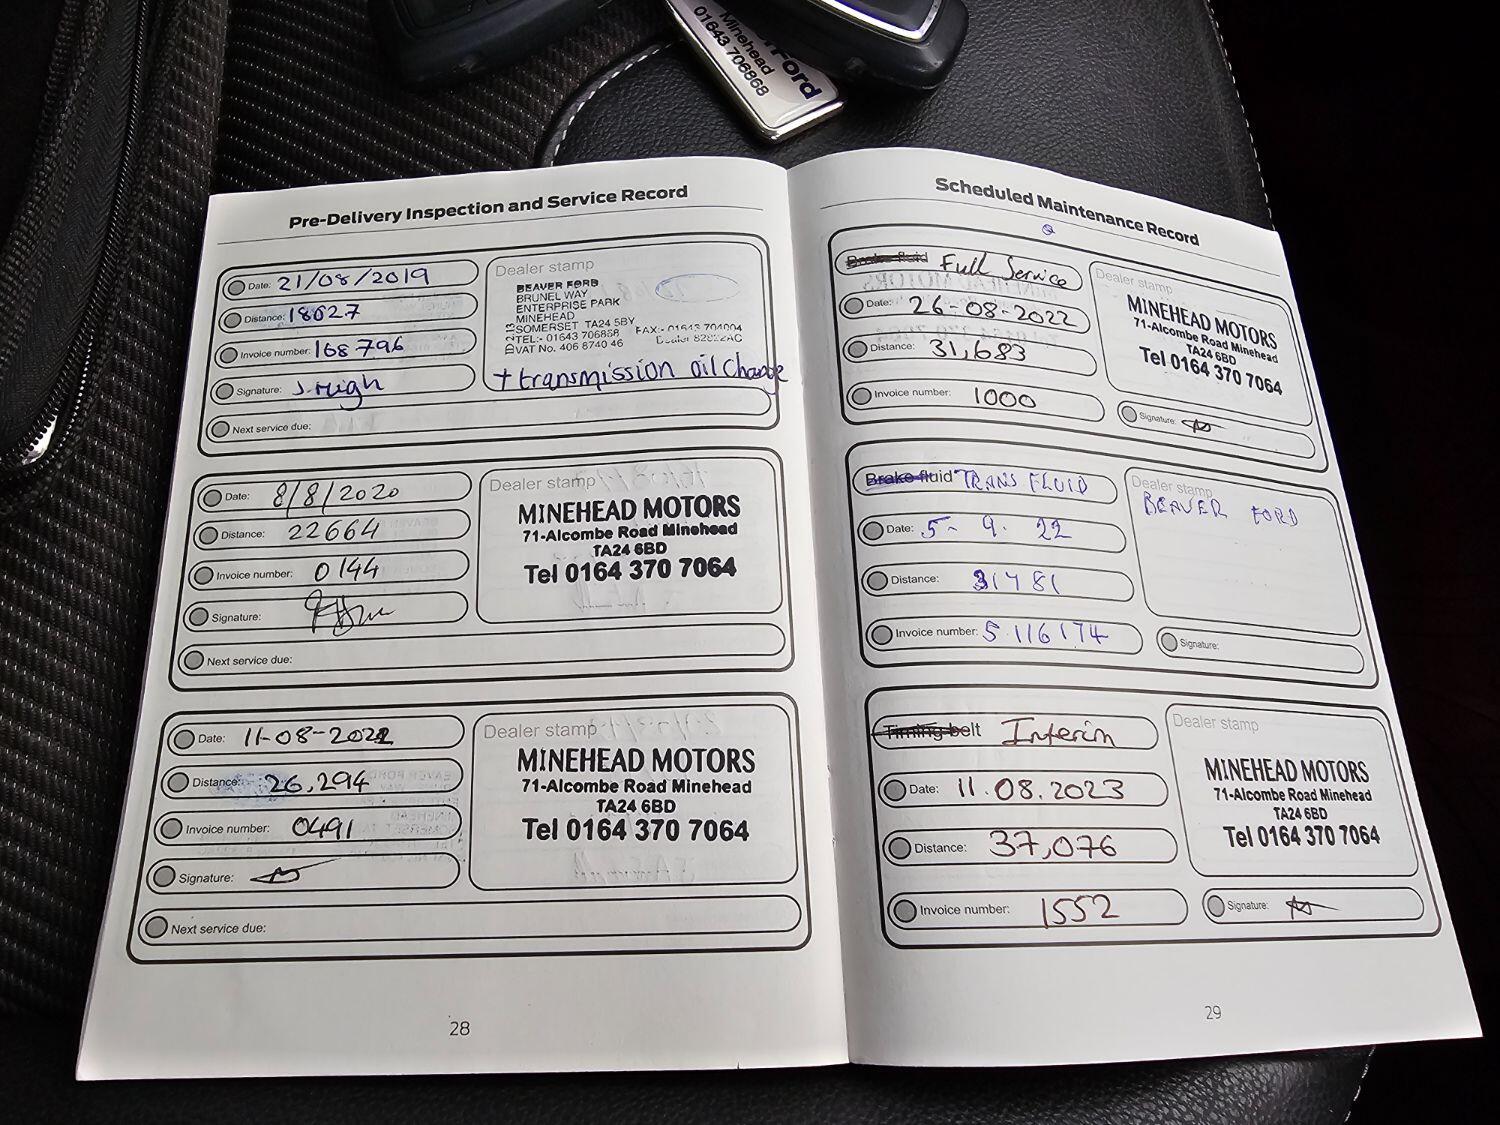 Ford
Minehead
01643 706868
Pre-Delivery Inspection and Service Record
Date: 21/08/2019
Distance: 18027
Invoice number: 168796
Signature:
Next service due:
Dealer stamp
BEAVER FORD
BRUNEL WAY
ENTERPRISE PARK
MINEHEAD
SOMERSET TA24 5BY
TEL:- 01643 706868 FAX:- 01643 704004
VAT No. 406 8740 46
+ transmission oil change
Date: 8/8/2020
Distance: 22664
Invoice number: 0144
Signature:
Next service due:
Dealer stamp
MINEHEAD MOTORS
71-Alcombe Road Minehead
TA24 6BD
Tel 0164 370 7064
Date: 11-08-202
Distance: 26,294
Invoice number: 0491
Signature:
Next service due:
Dealer stamp
MINEHEAD MOTORS
71-Alcombe Road Minehead
TA24 6BD
Tel 0164 370 7064
28
Scheduled Maintenance Record
Brake fluid Full Service
Date: 26-08-2022
Distance: 31,683
Invoice number: 1000
Dealer stamp
MINEHEAD MOTORS
71-Alcombe Road Minehead
TA24 6BD
Tel 0164 370 7064
Signature:
Brake fluid TRANS FLUID
Date: 5-9.22
Distance: 31781
Invoice number: 5116174
Dealer stamp
BEAVER FORD
Signature:
Timing belt Interim
Date: 11.08.2023
Distance: 37,076
Invoice number: 1552
Dealer stamp
MINEHEAD MOTORS
71-Alcombe Road Minehead
TA24 6BD
Tel 0164 370 7064
Signature:
29